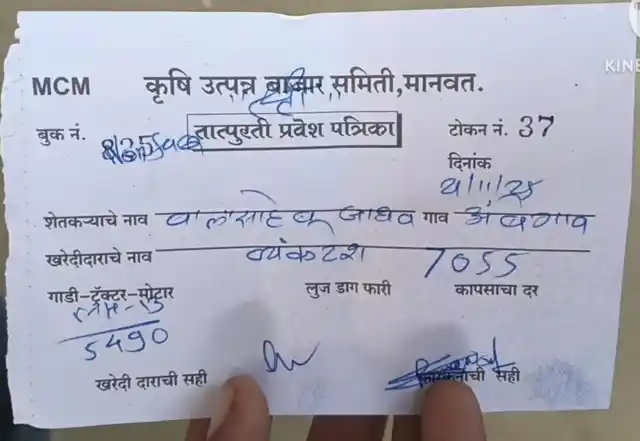 KINE
MCM कृषि उत्पन्न बाजार समिती,मानवत.
बुक नं. तात्पुरती प्रवेश पत्रिका टोकन नं. 37
दिनांक
शेतकऱ्याचे नाव बालासाहेब जाधव गाव अंबेगाव
खरेदीदाराचे नाव व्यंकटेश 7055
गाडी-ट्रॅक्टर-मोटार लुज डाग फारी कापसाचा दर
5490
खरेदी दाराची सही सही